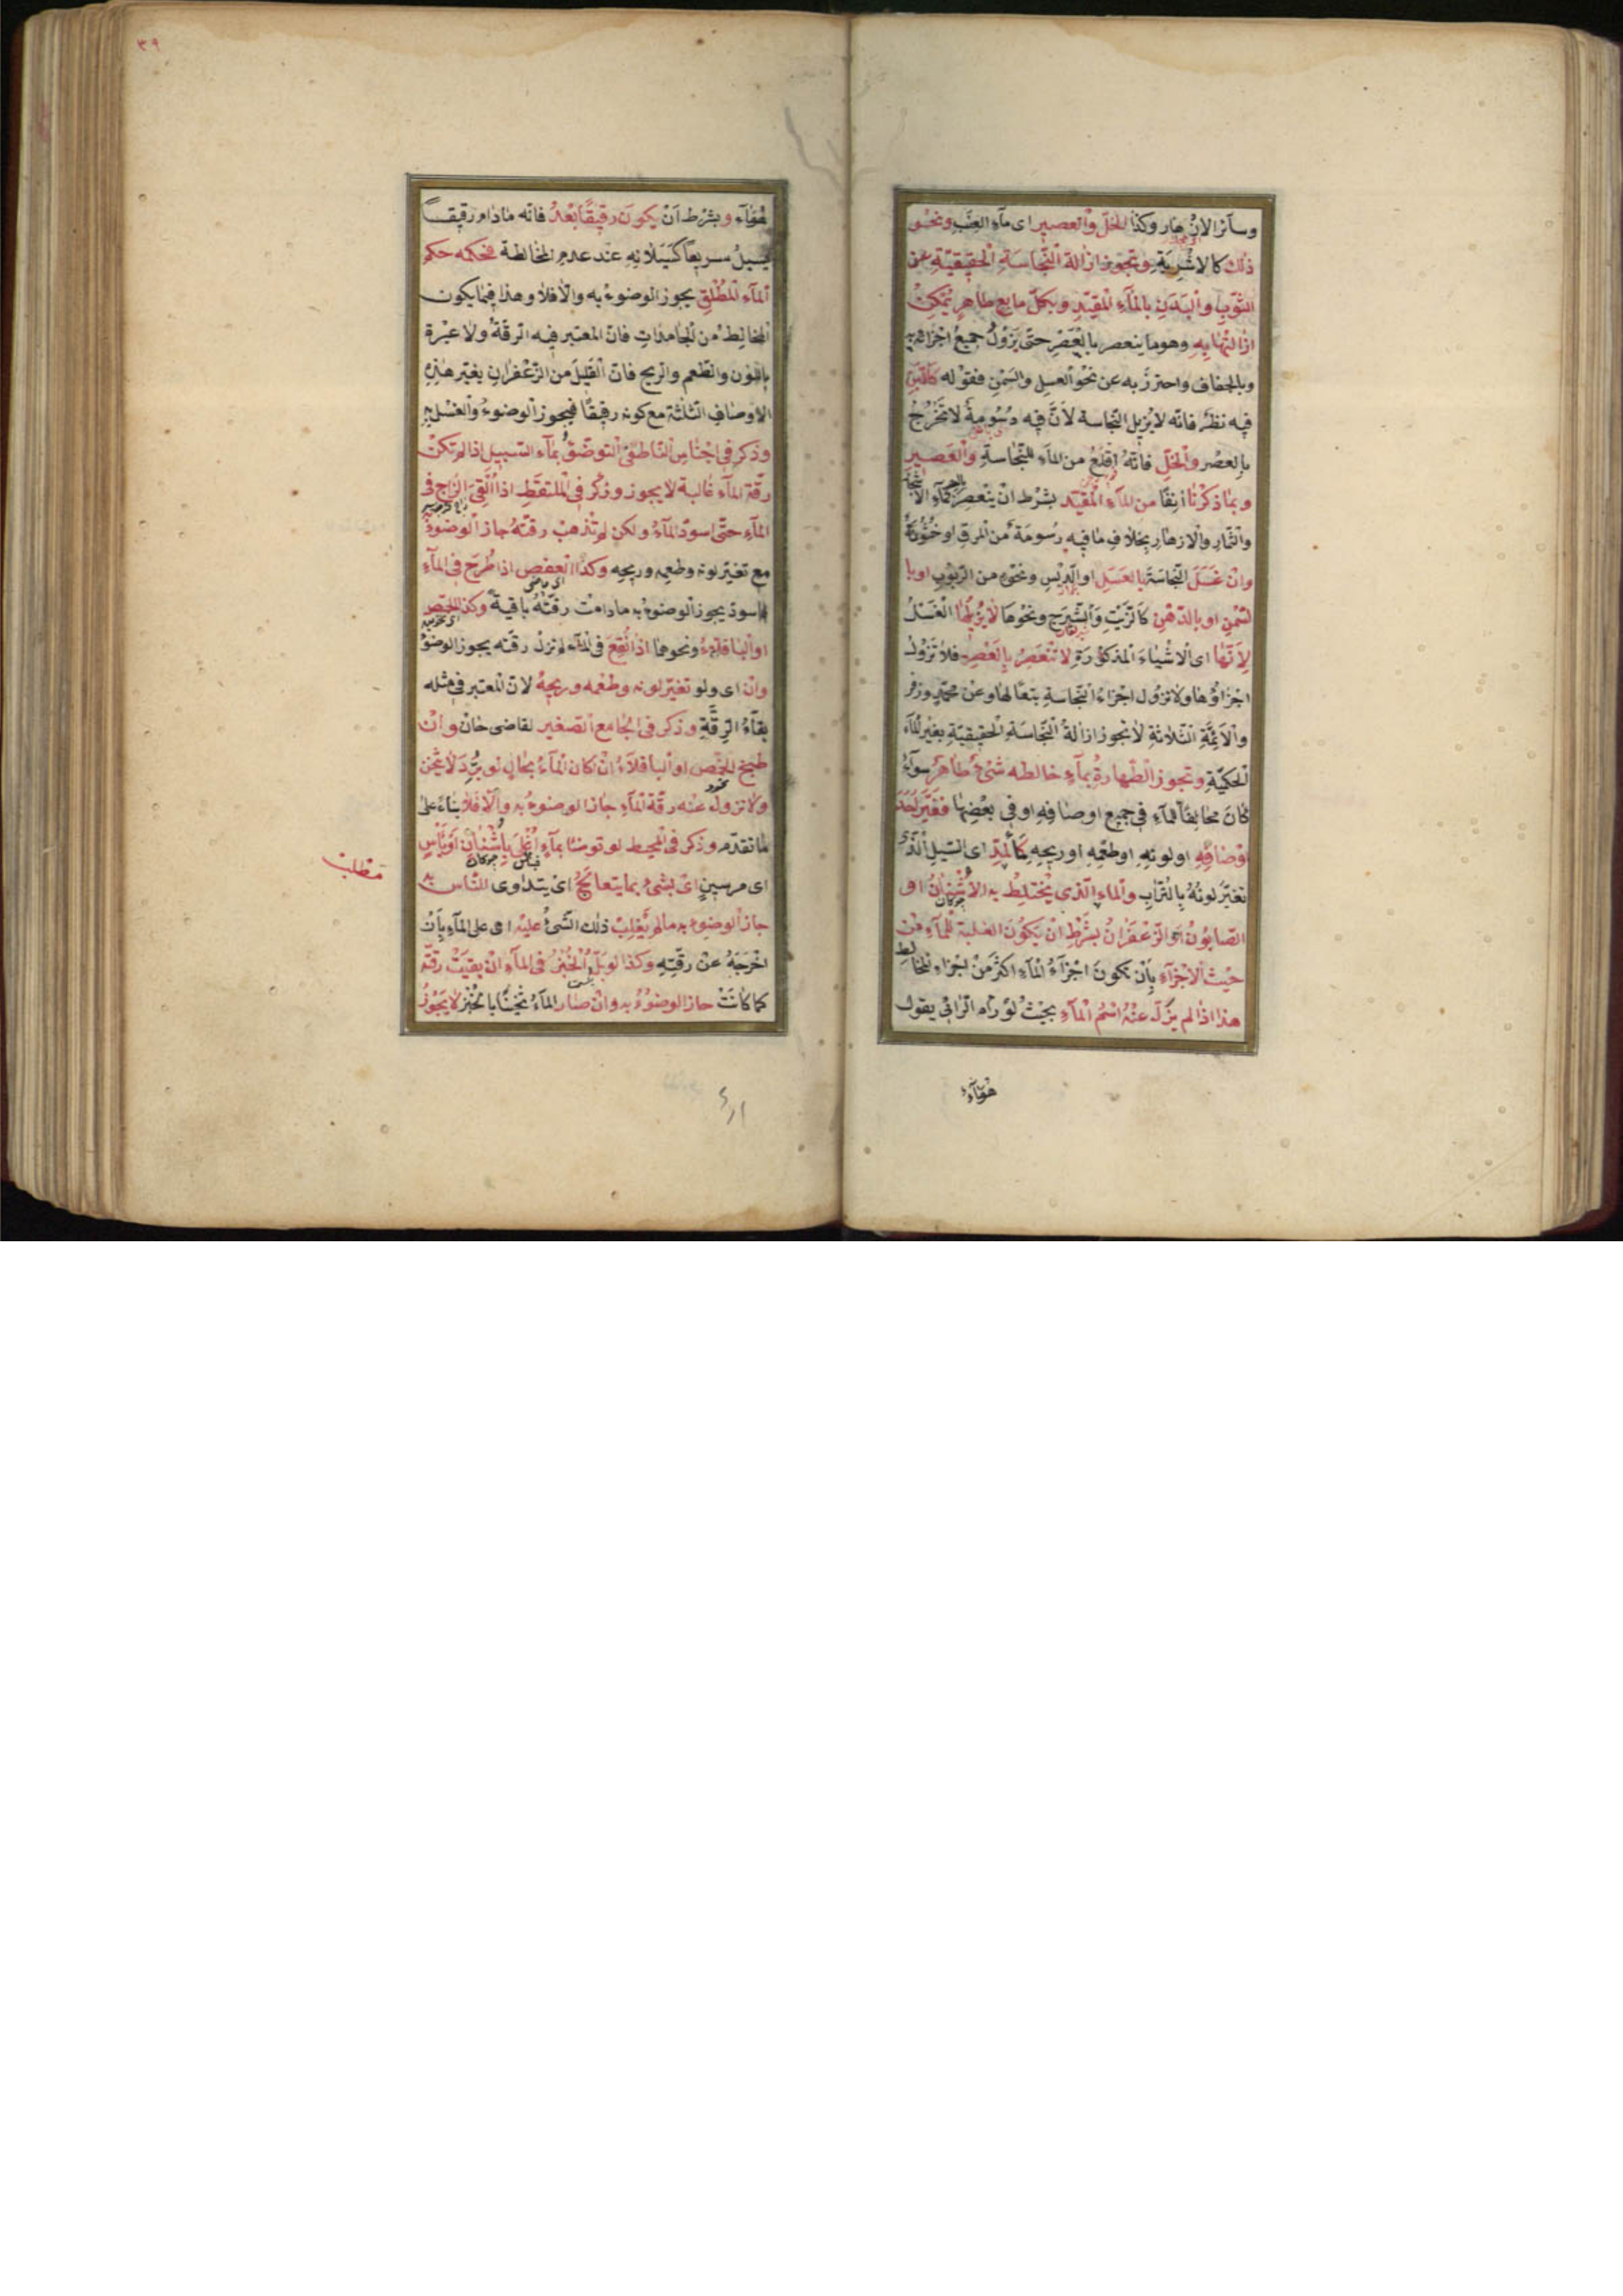 وسآئر الازهار وكذا الخلّ والعصير اى مآء العنب ونحو
ذلك كالاشربة وتجوز ازالة النّجاسة الحقيقيّة عن
الثّوب والبدن بالمآء المقيّد وبكلّ مايع طاهر يمكن
ازالتها به وهو ما ينعصر بالعصر حتّى يزول جميع اجزائه به
وبالجفاف واحترز به عن نحو العسل والسّمن فقوله كاللّبن
فيه نظر فانّه لا يزيل النّجاسة لانّ فيه دسومة لا تخرج
بالعصر والخلّ فانّه اقلع من المآء للنّجاسة والعصير
وبما ذكرنا انفا من المآء المقيّد بشرط ان ينعصر بالعصر كمآء الاشجار
والثّمار والازهار بخلاف ما فيه دسومة من المرق او خثورة
وان غسل النّجاسة بالعسل او الدّبس ونحوه من الرّبوب او با
لسّمن او بالدّهن كالزّيت والشّيرج ونحوها لا يزيلها الغسل
لانّها اى الاشياء المذكورة لا تنعصر بالعصر فلا تزول
اجزاؤها ولا تزول اجزاء النّجاسة تبعا لها وعن محمّد وزفر
والائمّة الثّلاثة لا تجوز ازالة النّجاسة الحقيقيّة بغير المآء
الحكميّة وتجوز الطّهارة بمآء خالطه شئ طاهر سوآء
كان مخالفا للمآء فى جميع اوصافه او فى بعضها فغيّر احد
اوصافه او لونه او طعمه او ريحه كالمدّ اى السّيل الّذى
تغيّر لونه بالتّراب والمآء الّذى يختلط به الاشنان او
الصّابون او الزّعفران بشرط ان يكون الغلبة للمآء من
حيث الاجزآء بان تكون اجزآء المآء اكثر من اجزاء المخالط
هذا اذا لم يزل عنه اسم المآء بحيث لو رآه الرّائى يقول
هومآء
٣٩
هومآء وبشرط ان يكون رقيقا بعد فانّه مادام رقيقا
يسيل سريعا كسيلانه عند عدم المخالطة فحكمه حكم
المآء المطلق يجوز الوضوء به والّا فلا وهذا فيما يكون
المخالط من الجامدات فانّ المعتبر فيه الرقّة ولا عبرة
باللّون والطّعم والرّيح فانّ القليل من الزّعفران يغيّر هذه
الاوصاف الثّلثة مع كونه رقيقا فيجوز الوضوء والغسل به
وذكر فى اجناس النّاطفى التوضّئ بمآء السّيل اذا لم تكن
رقّة المآء غالبة لا يجوز وذكر فى الملتقط اذا القى الزّاج فى
المآء حتّى اسودّ المآء ولكن لم تذهب رقّته جاز الوضوء
مع تغيّر لونه وطعمه وريحه وكذا العفص اذا طرح فى المآء
فاسودّ يجوز الوضوء به مادامت رقّته باقية وكذا الحمّص
او الباقلآء ونحوهما اذا انقع فى المآء لم تزل رقّته يجوز الوضوء
وان اى ولو تغيّر لونه وطعمه وريحه لانّ المعتبر فى مثله
بقآء الرقّة وذكر فى الجامع الصّغير لقاضى خان وان
طبخ الحمّص او الباقلآء ان كان المآء بحال لو برّد لا يثخن
ولا تزول عنه رقّة المآء جاز الوضوء به والّا فلا بناء على
ما تقدّم وذكر فى المحيط لو توضّأ بمآء اغلى باشنان او بآس
اى مرسين اى بشئ بما يتعالج اى يتداوى النّاس به
مطلب
جاز الوضوء به ما لم يغلب ذلك الشّئ عليه اى على المآء بان
اخرجه عن رقّته وكذا لو بلّ الخبز فى المآء ان بقيت رقّته
كما كانت جاز الوضوء به وان صار المآء ثخينا بالخبز لا يجوز